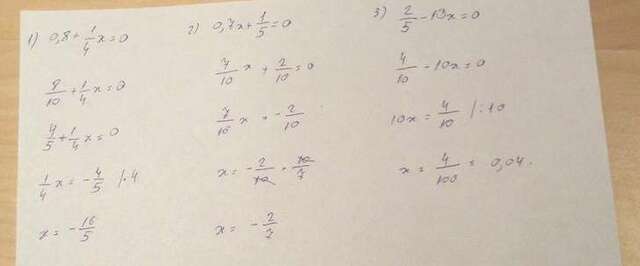 1) 0,8+1/4x=0
8/10+1/4x=0
4/5+1/4x=0
1/4x=-4/5 /·4
x=-16/5
2) 0,7x+1/5=0
7/10x+2/10=0
7/10x=-2/10
x=-2/10·10/7
x=-2/7
3) 2/5-10x=0
4/10-10x=0
10x=4/10 /:10
x=4/100=0,04.